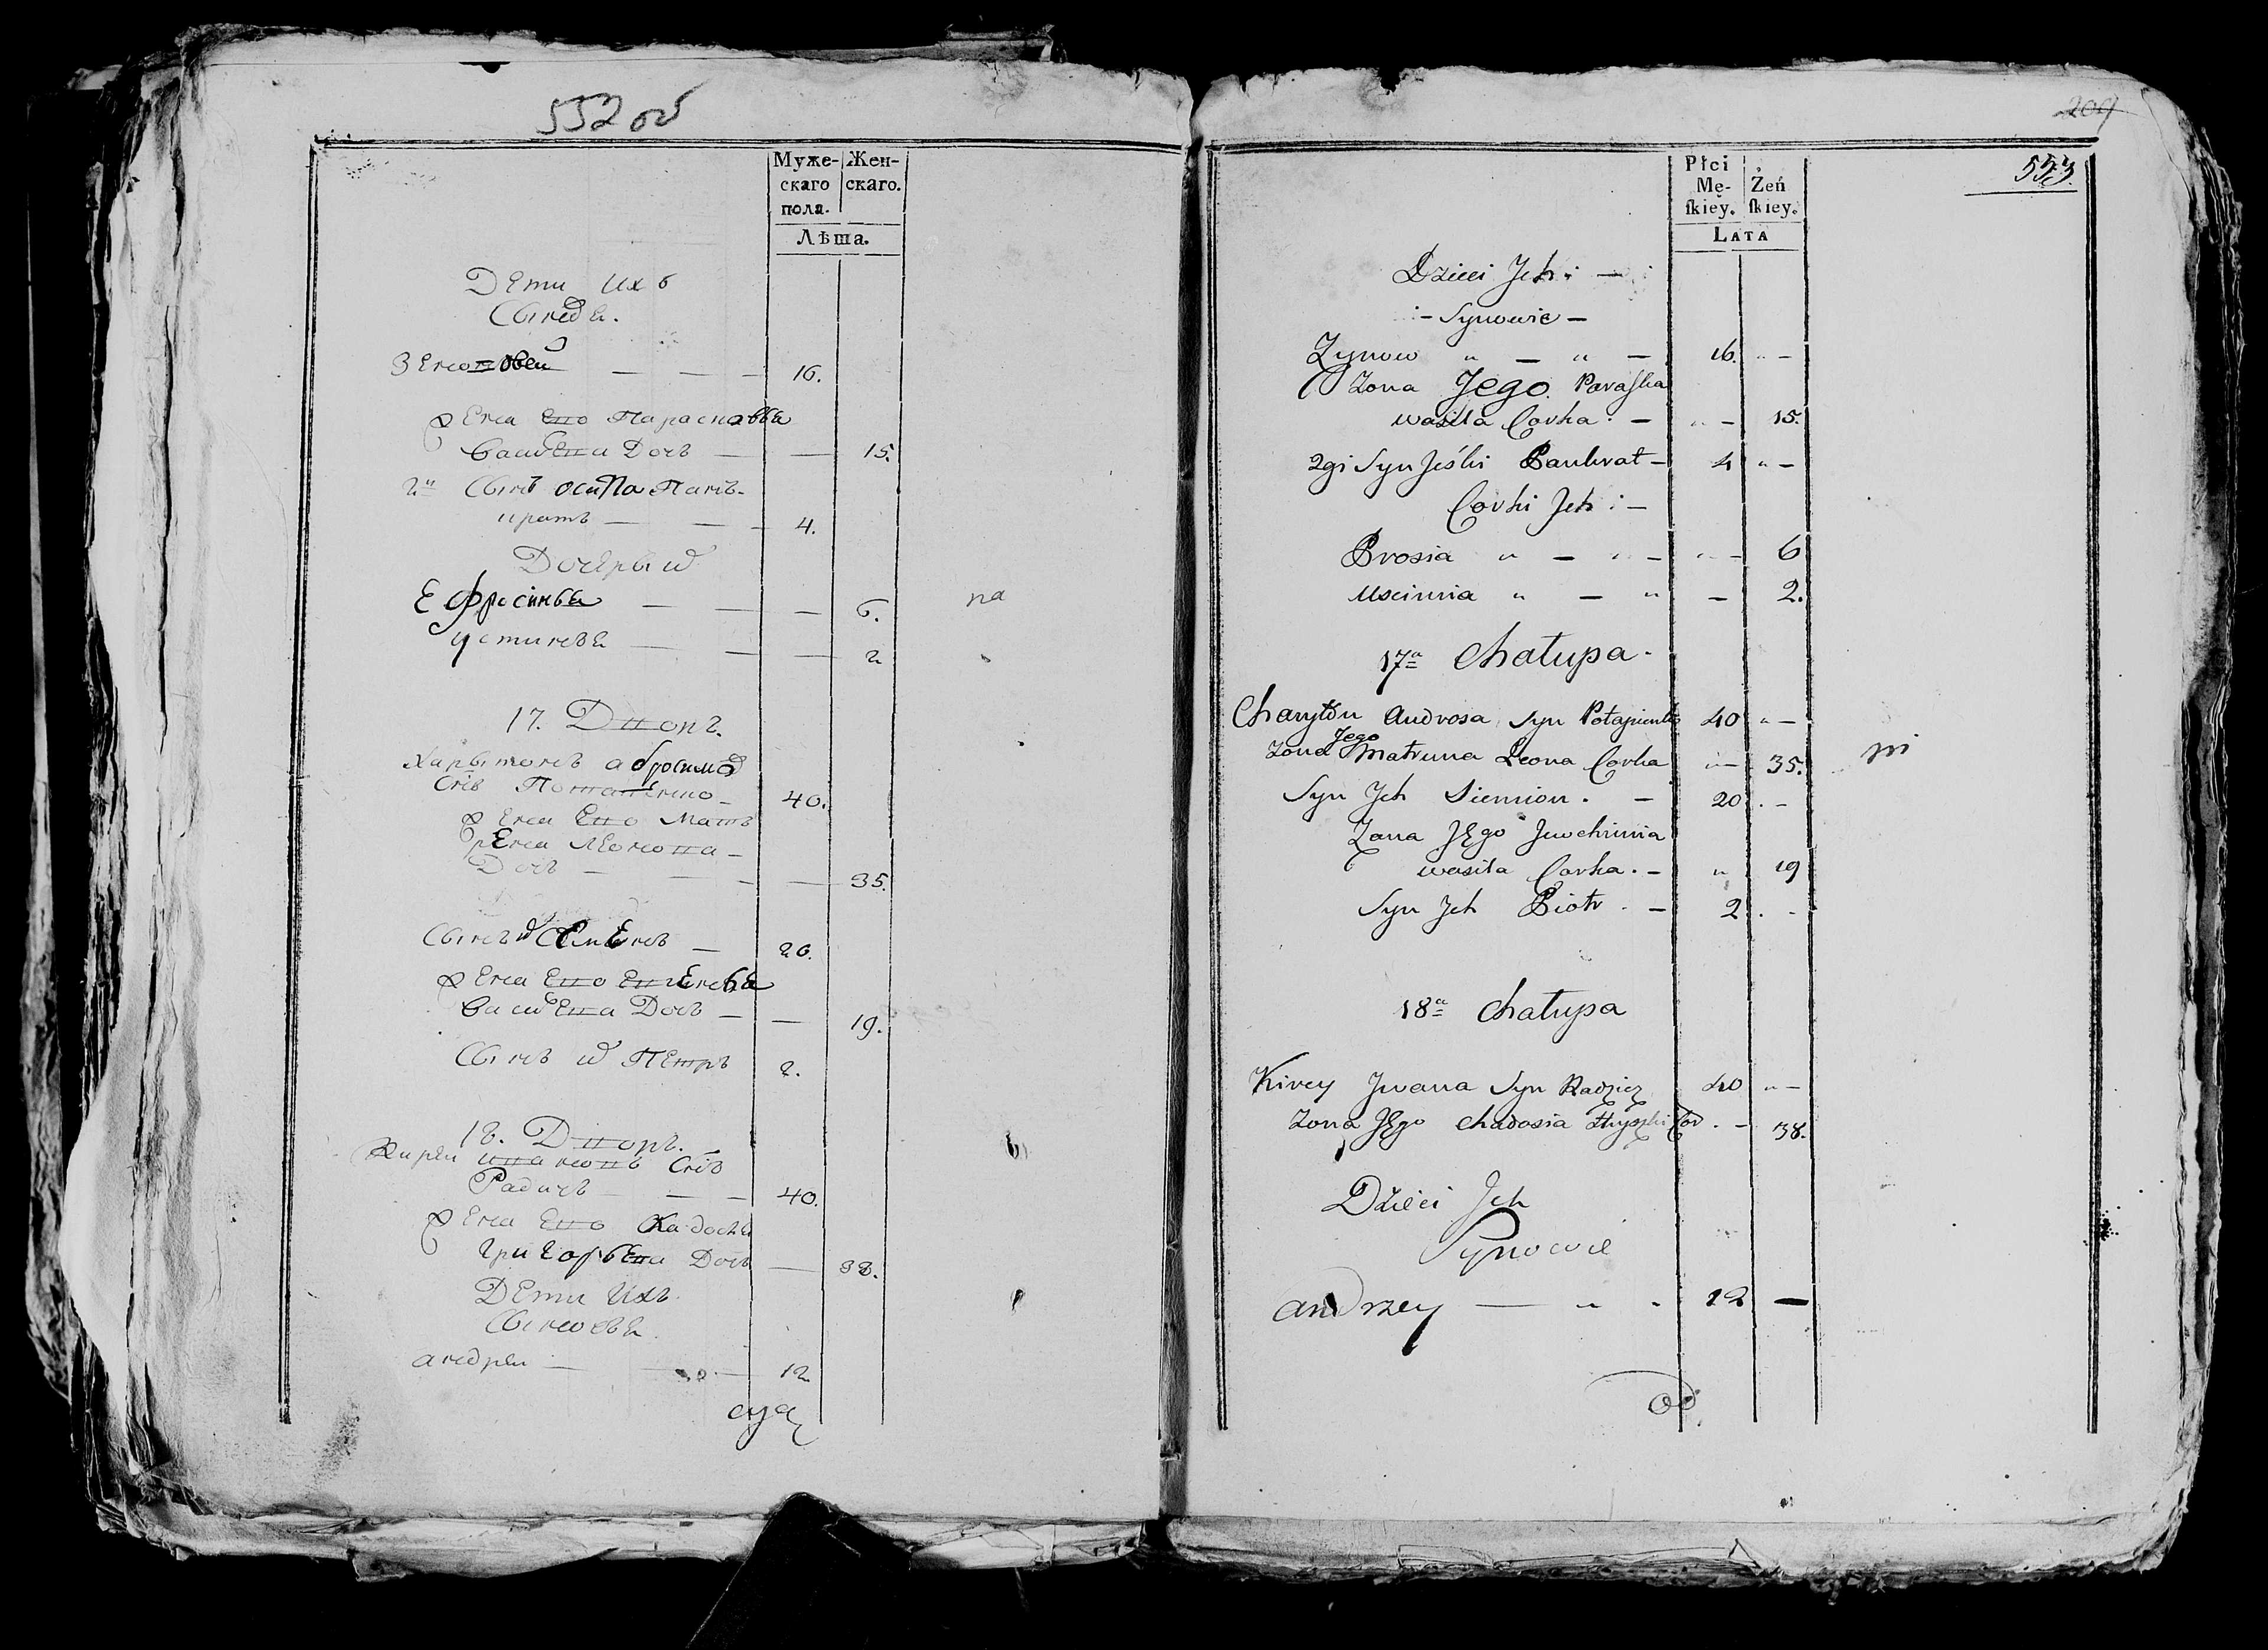 552 об
Муже-
скаго
пола.
Жен-
скаго.
Лѣта.
Дети Ихъ
Зеновей — — — 16.
Жена Ево Парасковья
Василева Дочь — — 15.
2й Сынъ осипа Панъ-
кратъ — — 4.
Дочеры
Ефросинья — — — 6.
устинья — — — 2
17. Дворъ.
Харытонъ абросимов
Снъ Потапенко — 40.
Жена Ево Мат
рена Леонова —
Дочь — — — — 35.
Сынъ Семенъ — 20.
Жена Ево
Василева Дочь — — 19.
Сынъ Петръ 2.
18. Дворъ.
Кирей Ивановъ Снъ
Радичь — — — 40.
Жена Ево Хадосья
Григорьева Дочь — 38.
Дети Ихъ
Сыновья.
андрей — — 12
209
553
Płci
Mę-
ſkiey.
Żeń
ſkiey.
LATA
Dzieci Jch : —
:– Synowie –
Zynow " — " — 16. " —
Zona Jego Paraſka
wasila Corka . — " — 15.
2gi Syn Jeśki Pankrat — 4 " —
Corki Jch : —
Prosia " — " — " — 6
Uscinnia " — " — 2.
17a Chałupa .
Charyton Androsa Syn Potapienko 40 " —
Zona Jego Matruna Leona Corka " — 35.
Syn Jch Siemion . — 20 . —
Zona JEgo Jwochimia
wasila Corka . — " 19
Syn Jch Piotr . — 2 . -
18a Chałupa
Kirey Jwana Syn Radzicz 40 " —
Zona JEgo Chadosia Hryszki Cor . — 38.
Dzieci Jch
Synowie
andrzey — " . 12 —